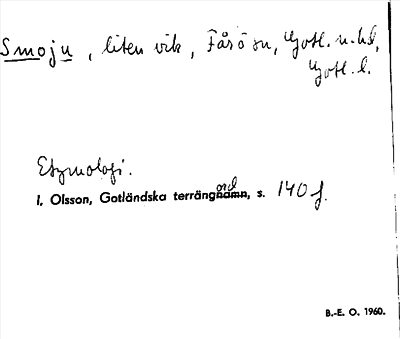 Smoju, liten vik, Fårö sn, Gotl. n. hd,
Gotl. l.
Etymologi.
I. Olsson, Gotländska terrängord, s. 140 f.
B.-E. O. 1960.